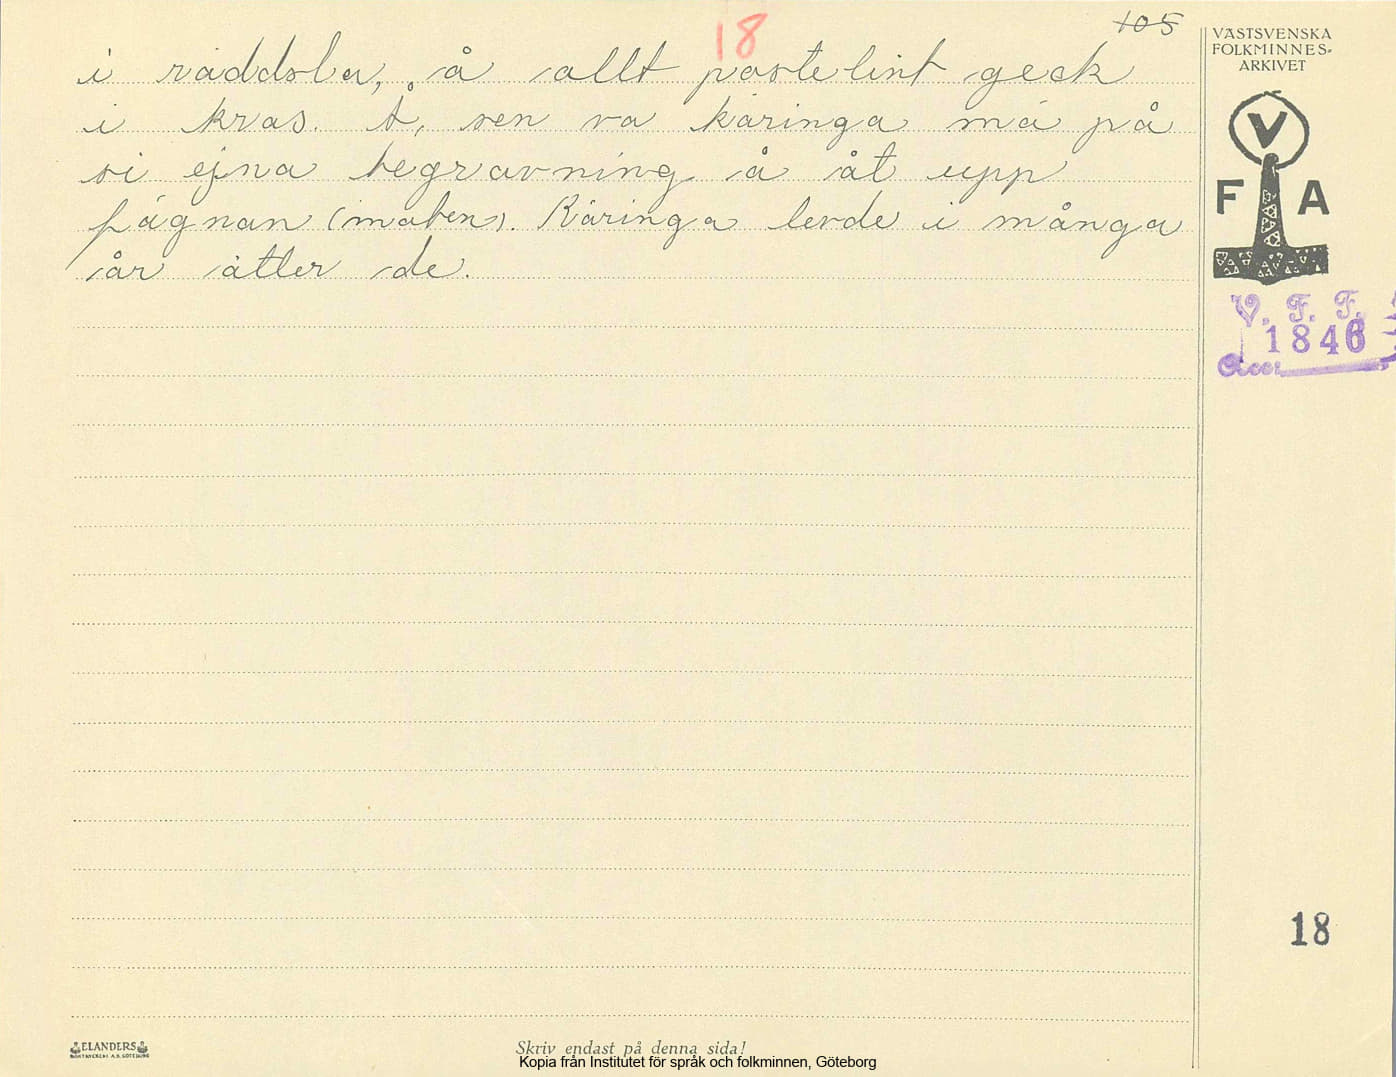 18
105
i räddsla, å allt postelint geck
i kras. Å, sen va käringa mä på
si ejna begravning å åt upp
fägnan (maten). Käringa levde i många
år ätter de.
VÄSTSVENSKA
FOLKMINNES-
ARKIVET
V
F A
V. F. F.
1846
Acc:
18
ELANDERS
BOKTRYCKERI A.B. GÖTEBORG
Skriv endast på denna sida!
Kopia från Institutet för språk och folkminnen, Göteborg